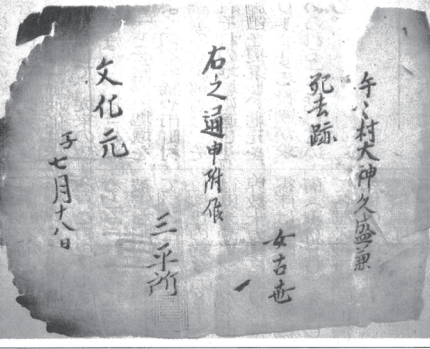 午ミ村大神久盛兼
死去跡
女古芭
右之通申附候
三平所
文化元
子七月十八日